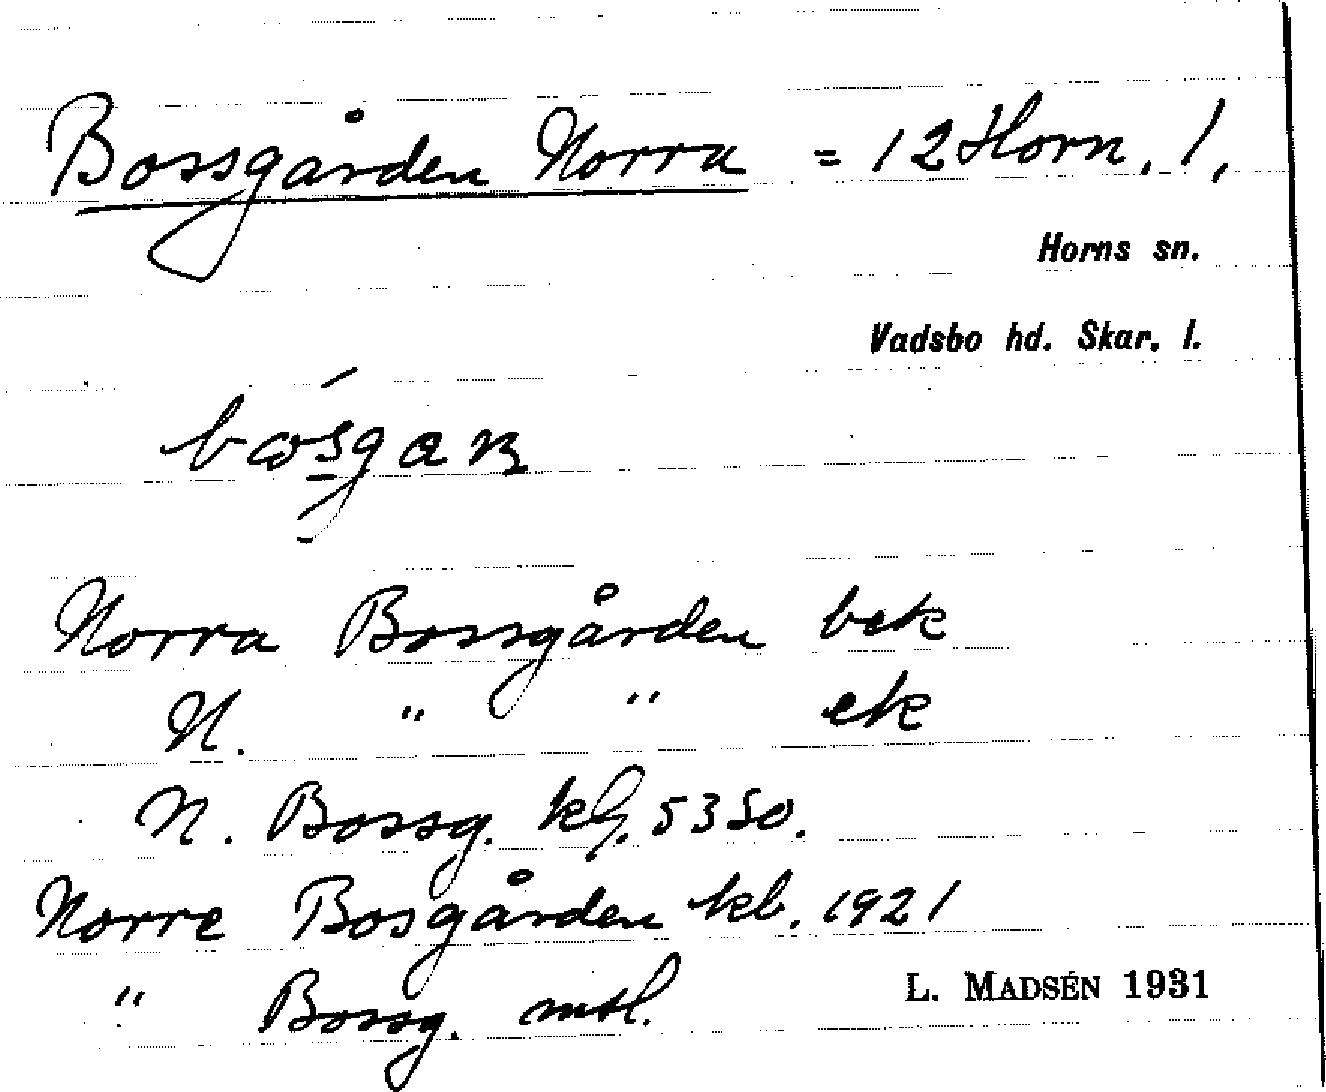 Bossgården Norra = 12 Horn. 1,
Horns sn.
Vadsbo hd. Skar. l.
Norra Bossgården bek
N. " " ek
N. Bossg. kf. 5350.
Norre Bosgården kb. 1921
" Bossg. mtl.
L. MADSÉN 1931